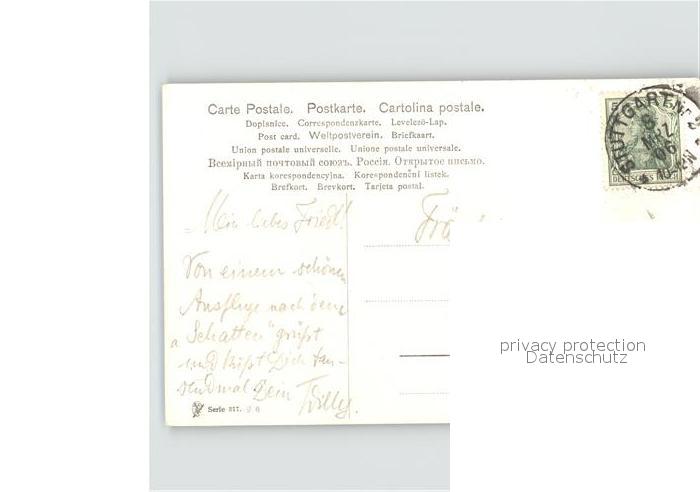 Carte Postale. Postkarte. Cartolina postale.
Dopisnice. Correspondenzkarte. Levelező-Lap.
Post card. Weltpostverein. Briefkaart.
Union postale universelle. Unione postale universale.
Всемірный почтовый союзъ. Россія. Открытое письмо.
Karta korespondencyjna. Korespondenční listek.
Brefkort. Brevkort. Tarjeta postal.
STUTTGART
DEUTSCHES REICH
Mein liebes Friedl!
Frä
Von einem schönen
Ausfluge nach dem
"Schatten" grüßt
und küßt Dich tau-
sendmal Dein Willy.
Serie 317.
privacy protection
Datenschutz